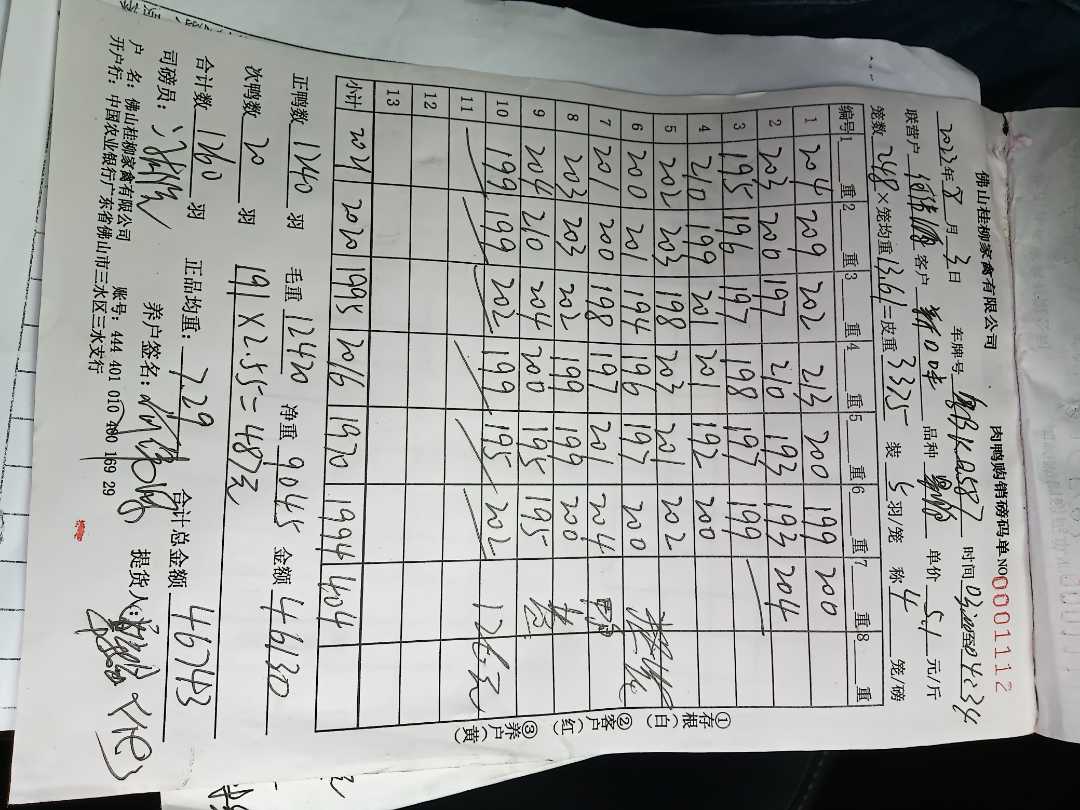 佛山桂柳家禽有限公司 肉鸭购销磅码单 NO 0001112
2022年8月3日 车牌号 时间 至04:34
联营户 客户 新口味 品种 单价 5.1 元/斤
笼数 248 ×笼均重 13.61 =皮重 3375 装 5 羽/笼 称 4 笼/磅
编号 1 重 2 重 3 重 4 重 5 重 6 重 7 重 8 重
1 204 209 202 213 200 199 200
2 203 200 197 210 193 193 204
3 195 196 197 198 197 199
4 210 199 201 201 192 200
5 202 203 198 203 201 202
6 200 201 194 196 197 200
7 201 200 198 197 201 204
8 203 203 202 199 199 200
9 204 210 204 200 195 195
10 199 199 202 199 195 202 126元
11
12
13
小计 2021 2020 1995 2016 1970 1994 404
正鸭数 1240 羽 毛重 12420 净重 9045 金额 46130
次鸭数 20 羽 191×2.55=487元
合计数 1260 羽 正品均重: 7.29 合计总金额 46743
司磅员: 养户签名: 提货人:
户 名: 佛山桂柳家禽有限公司 账号: 444 401 010 400 169 29
开户行: 中国农业银行广东省佛山市三水区三水支行
①存根(白) ②客户(红) ③养户(黄)